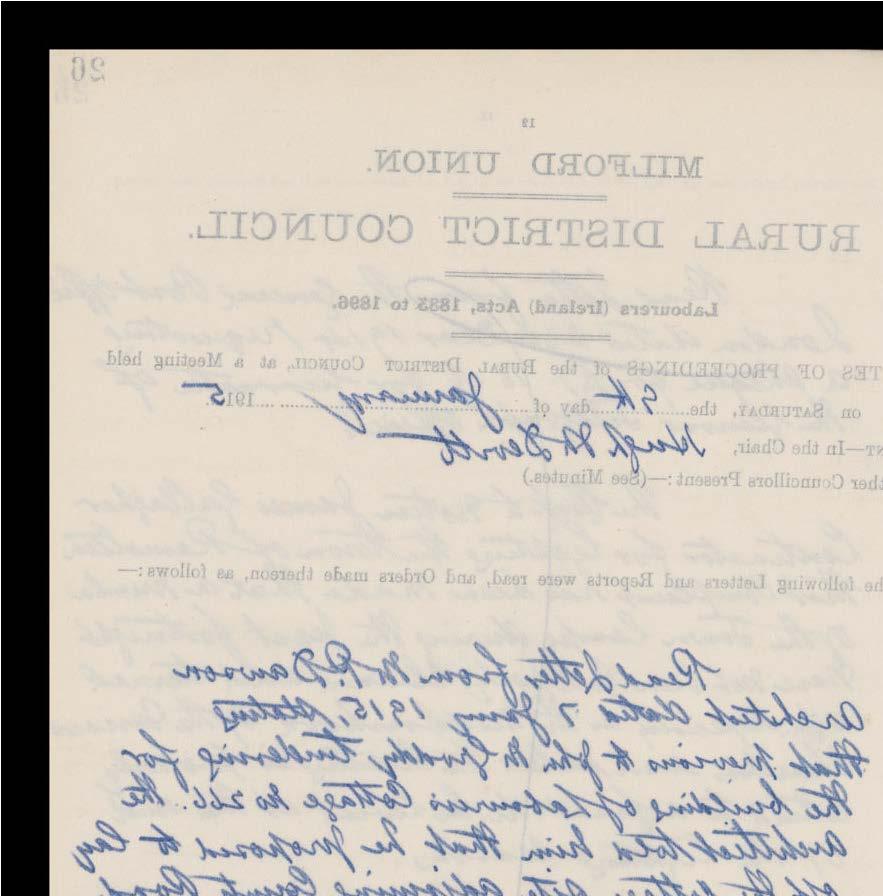 26
12
MILFORD UNION.
RURAL DISTRICT COUNCIL.
Labourers (Ireland) Acts, 1883 to 1896.
TES OF PROCEEDINGS of the RURAL DISTRICT COUNCIL, at a Meeting held
on SATURDAY, the 9th day of January 1915.
ST—In the Chair, Hugh McDevitt
ther Councillors Present:—(See Minutes.)
he following Letters and Reports were read, and Orders made thereon, as follows:—
Read letter from W.P. Dawson
Architect dated 7 Jany 1915, stating
that previous to Jn. McCroddy tendering for
the building of Labourers Cottage No 266. The
Architect told him that he proposed to lay